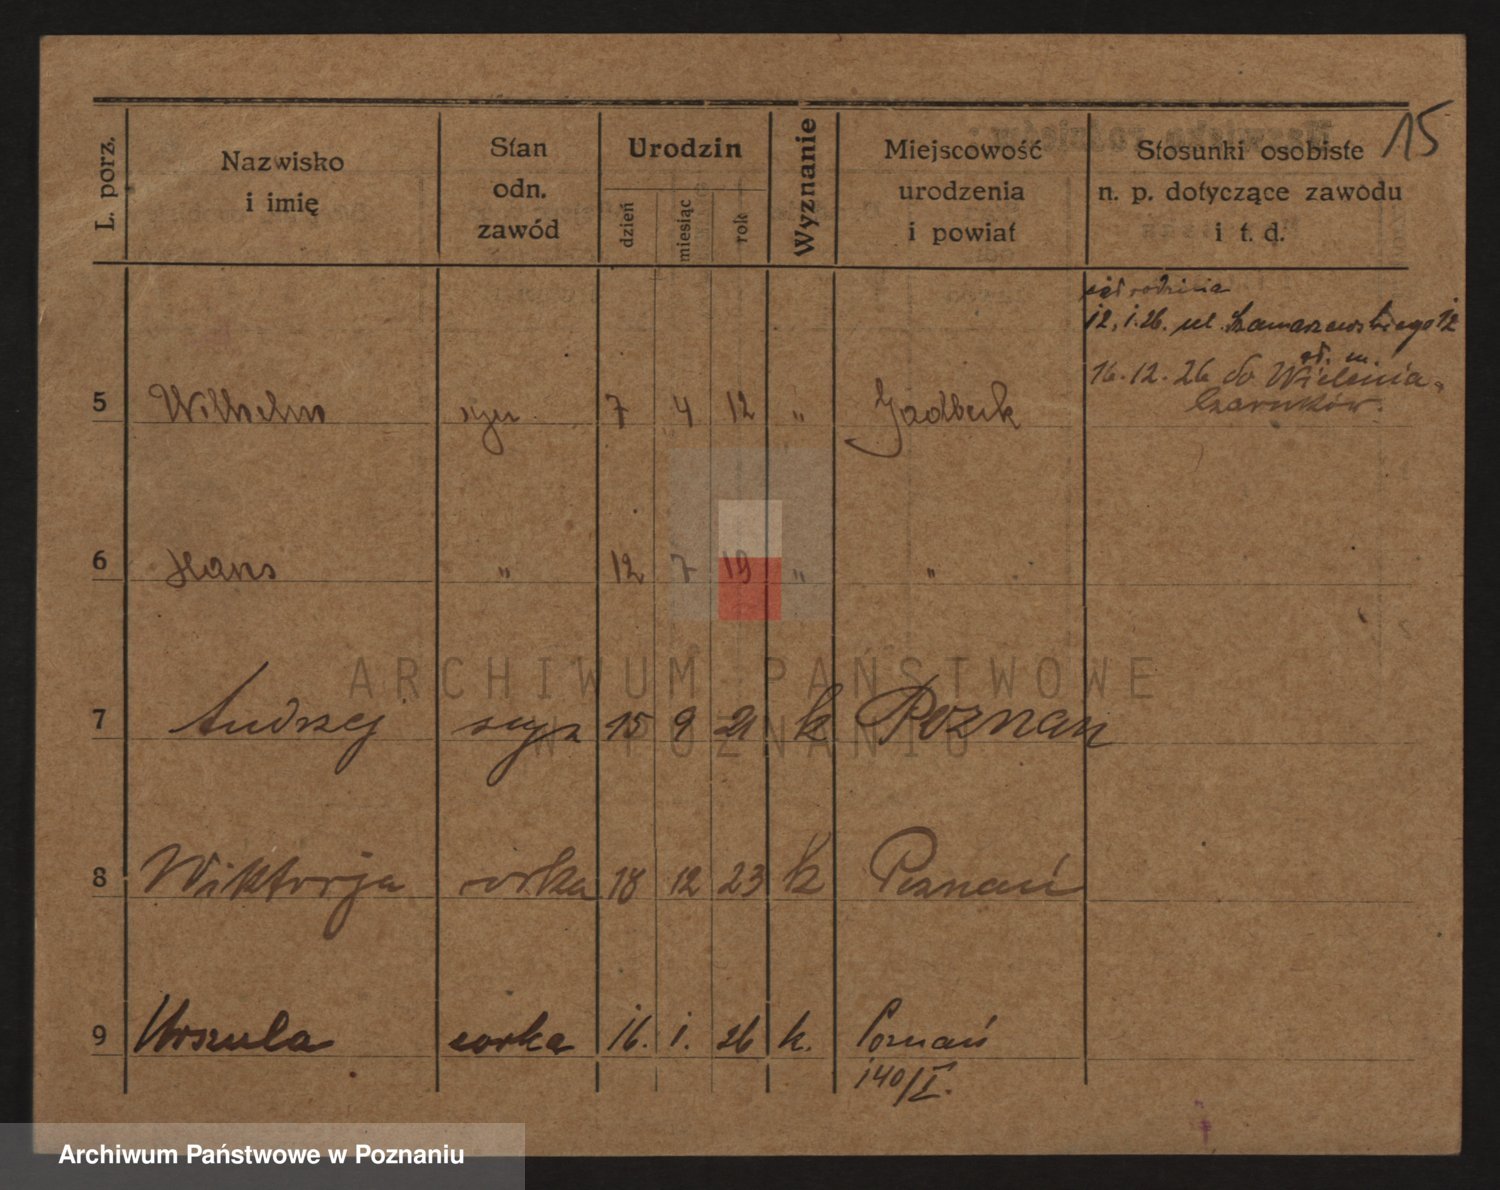 15
L. porz.
Nazwisko
i imię
Stan
odn.
zawód
Urodzin
dzień
miesiąc
rok
Wyznanie
Miejscowość
urodzenia
i powiat
Stosunki osobiste
n. p. dotyczące zawodu
i t. d.
rodzina
12.1.26. ul. Szamarzewskiego 12
16.12.26 do Wielenia
Czarnków.
5 Wilhelm syn 7 4 12 " Gladbeck
6 Hans " 12 7 19 " "
7 Andrzej syn 15 9 21 k Poznan
8 Wiktorja corka 18 12 23 k Poznań
9 Urszula corka 16. 1. 26 k. Poznań
140/I.
ARCHIWUM PAŃSTWOWE
W POZNANIU
Archiwum Państwowe w Poznaniu